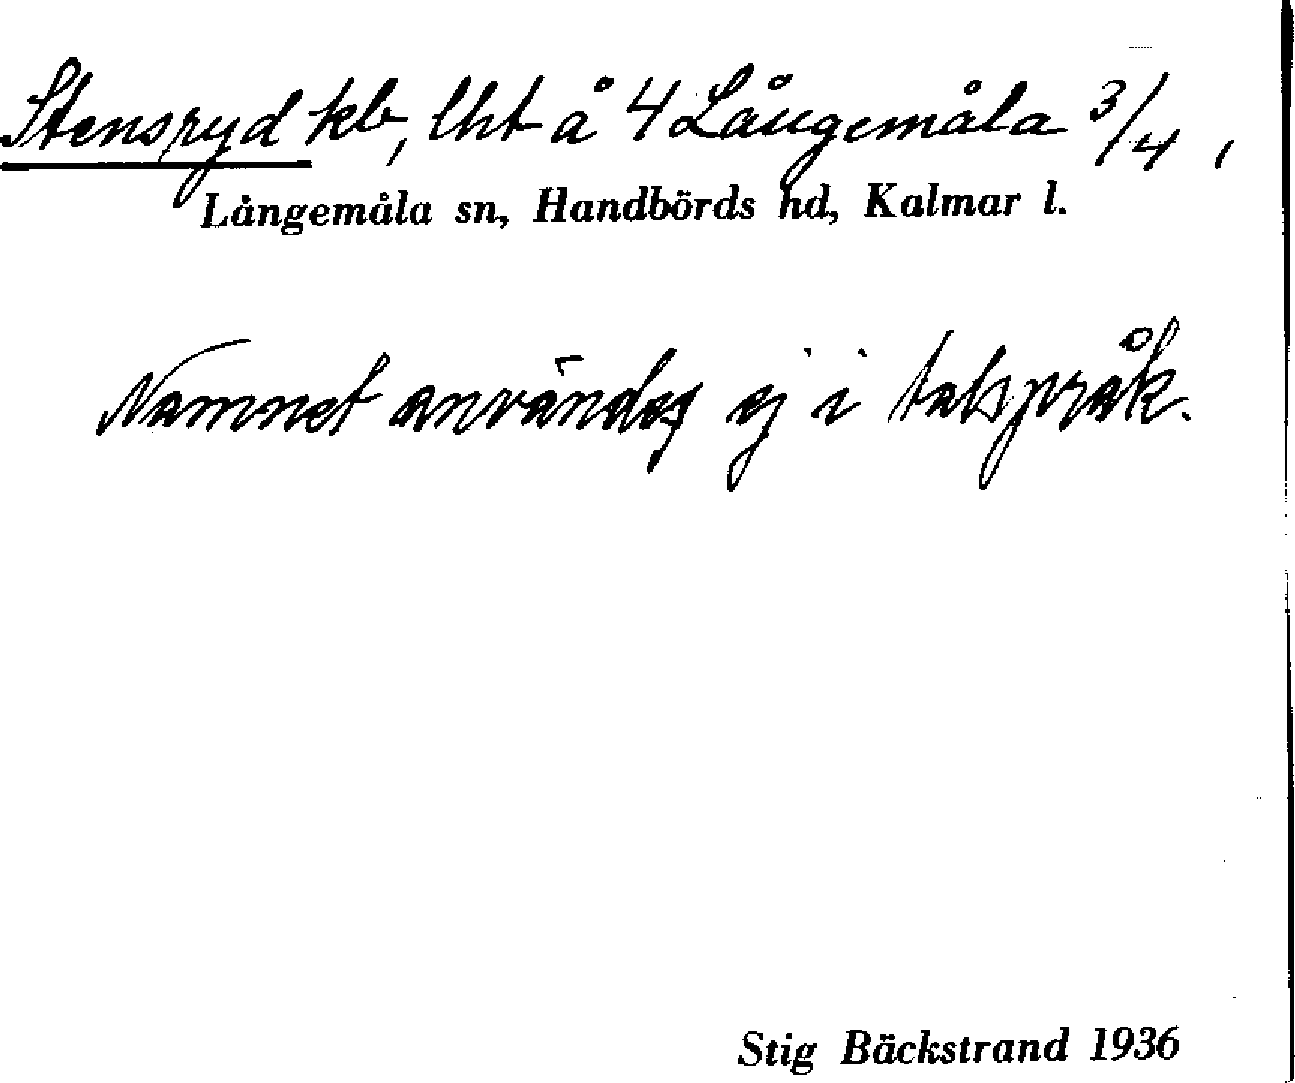 Stensryd kb, lht å 4 Långemåla 3/4,
Långemåla sn, Handbörds hd, Kalmar l.
Namnet användes ej i talspråk.
Stig Bäckstrand 1936